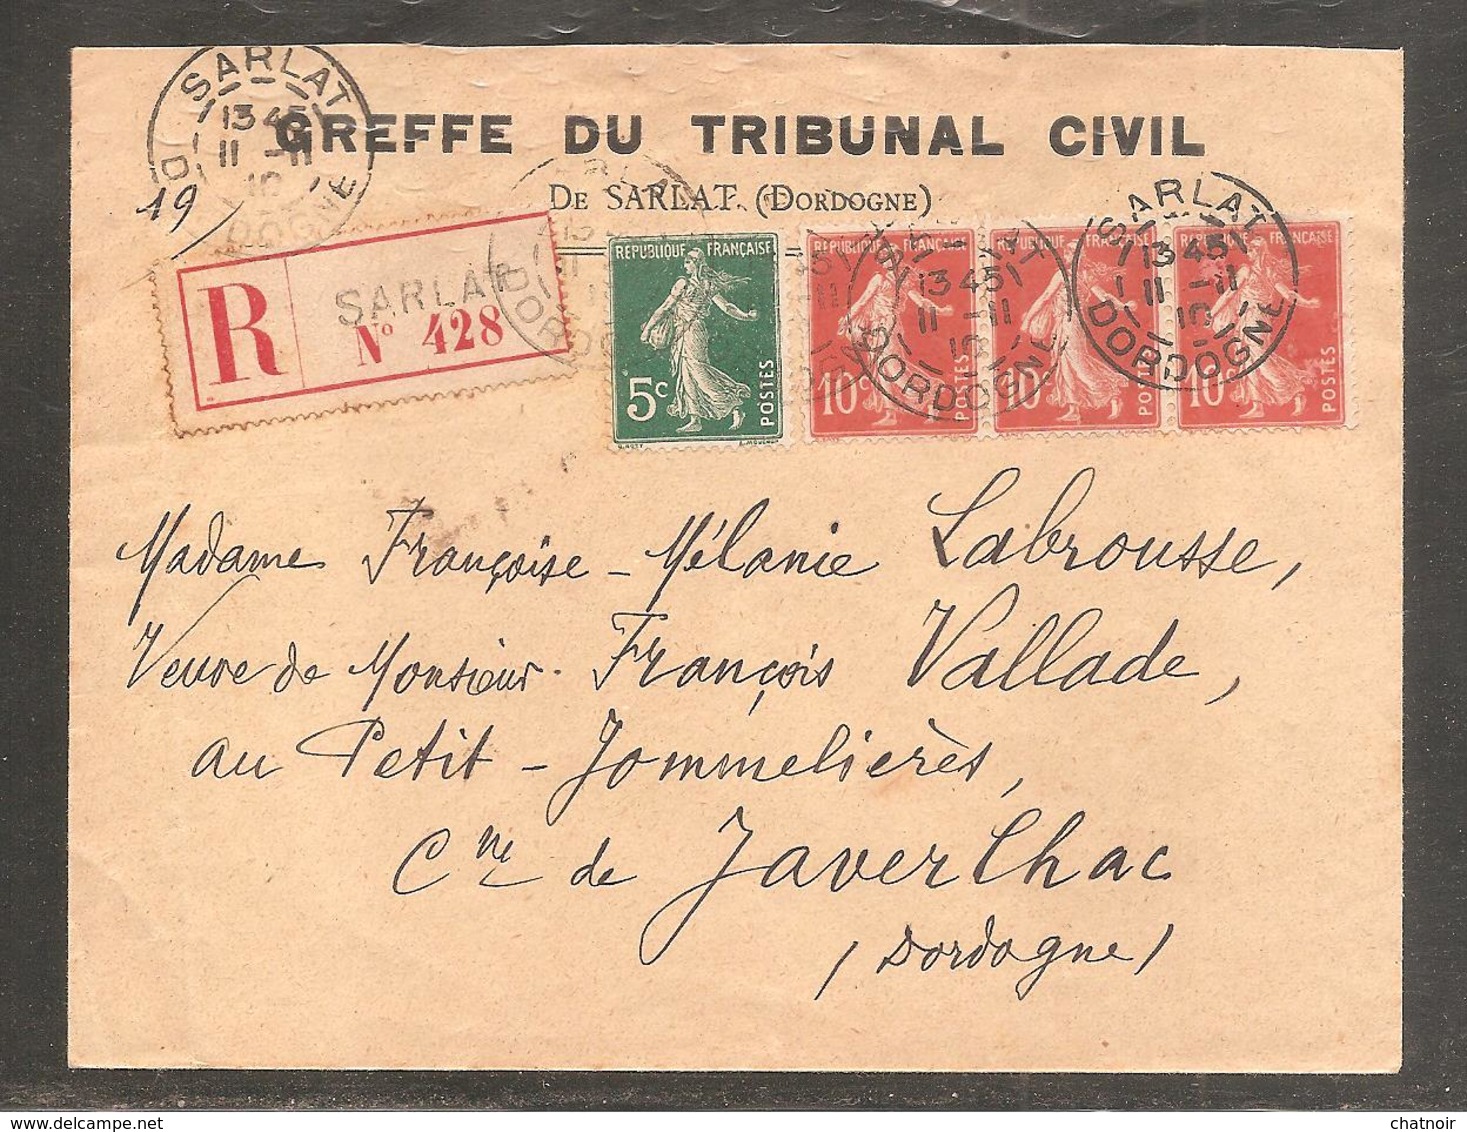 SARLAT
13 45
11 - 11
10
DORDOGNE
GREFFE DU TRIBUNAL CIVIL
DE SARLAT (DORDOGNE)
19
R
SARLAT
N° 428
REPUBLIQUE FRANÇAISE
5c
POSTES
REPUBLIQUE FRANÇAISE
10c
POSTES
REPUBLIQUE FRANÇAISE
10
POSTES
REPUBLIQUE FRANÇAISE
10
POSTES
SARLAT
13 45
11 - 11
10
DORDOGNE
Madame Françoise - Mélanie Labrousse,
Veuve de Monsieur François Vallade,
au Petit - Jommelières,
Cne de Javerlhac
(Dordogne)
chatnoir